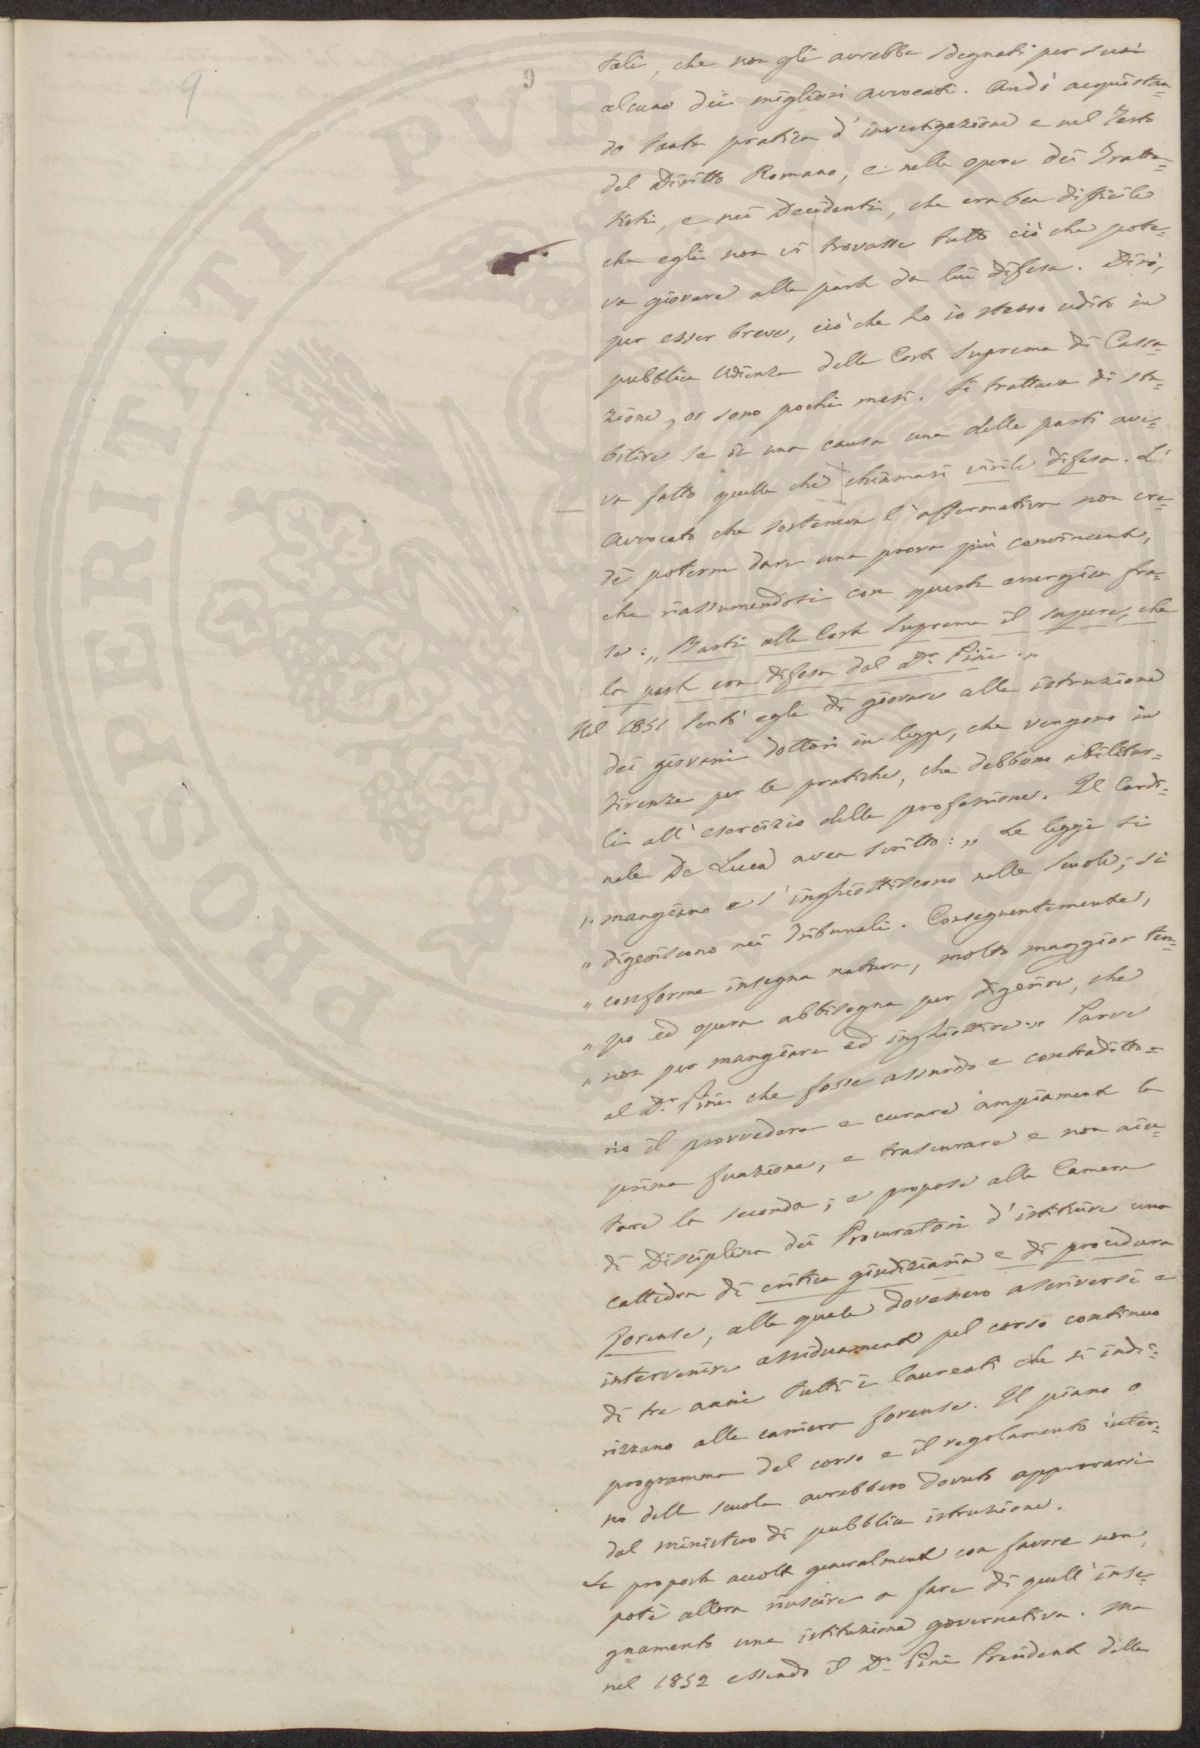 9
9
tali, che non gli avrebbe sdegnati per suoi
alcuno dei migliori avvocati. Andò acquistan=
do tanta pratica d'investigazione e nel Testo
del Diritto Romano, e nelle opere dei Tratta=
tisti, e nei Decidenti, che era ben difficile
che egli non vi trovasse tutto ciò che pote=
va giovare alla parte da lui difesa. Dirò,
per esser breve, ciò che ho io stesso udito in
pubblica Udienza della Corte Suprema di Cassa=
zione, or sono pochi mesi. Si trattava di sta=
bilire se in una causa una delle parti ave=
va fatto quella che chiamasi virile difesa. L'
Avvocato che sosteneva l'affermativa non cre=
dè poterne dare una prova più convincente,
che riassumendosi con questa energica fra=
se: „ Basti alla Corte Suprema il sapere, che
la parte era difesa dal Dr. Pini. „
Nel 1851 tentò egli di giovare alla istruzione
dei giovani dottori in legge, che vengono in
Firenze per le pratiche, che debbono abilitar=
li all'esercizio della professione. Il Cardi=
nale De Luca avea scritto: „ Le leggi si
„ mangiano e s'inghiottiscono nelle scuole; si
„ digeriscono nei Tribunali. Conseguentemente,
„ conforme insegna natura, molto maggior tem=
„ po ed opera abbisogna per digerire, che
„ non per mangiare ed inghiottire. „ Parve
al Dr. Pini che fosse assurdo e contraditto=
rio il provvedere e curare ampiamente la
prima funzione, e trascurare e non aiu=
tare la seconda; e propose alla Camera
di Disciplina dei Procuratori d'istituire una
cattedra di critica giudiziaria e di procedura
Forense, alla quale dovessero ascriversi e
intervenire assiduamente pel corso continuo
di tre anni tutti i laureati che si indi=
rizzano alla carriera forense. Il piano o
programma del corso e il regolamento inter=
no della scuola avrebbero dovuto approvarsi
dal ministero di pubblica istruzione.
La proposta accolta generalmente con favore non
potè allora riuscire a fare di quell'inse=
gnamento una istituzione governativa. Ma
nel 1852 essendo il Dr. Pini Presidente della
PROSPERITATI PVBLICAE